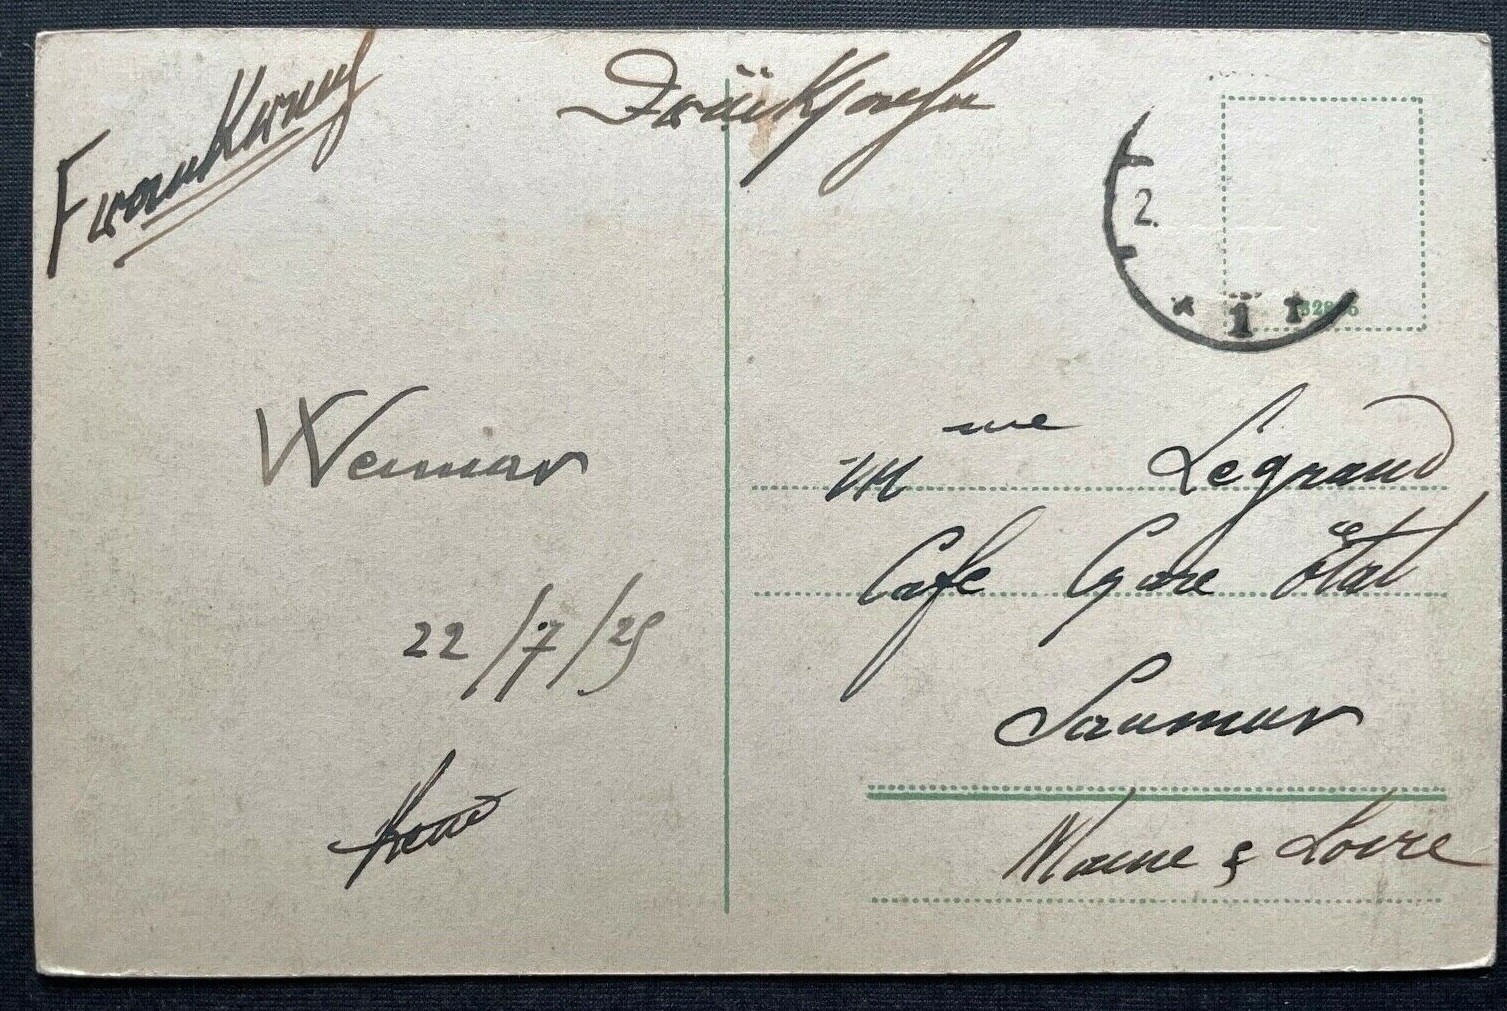 Frankreich
Drücksache
2.
1
Weimar
22/7/25
Mme Legrand
Café Gare État
Saumur
Maine & Loire